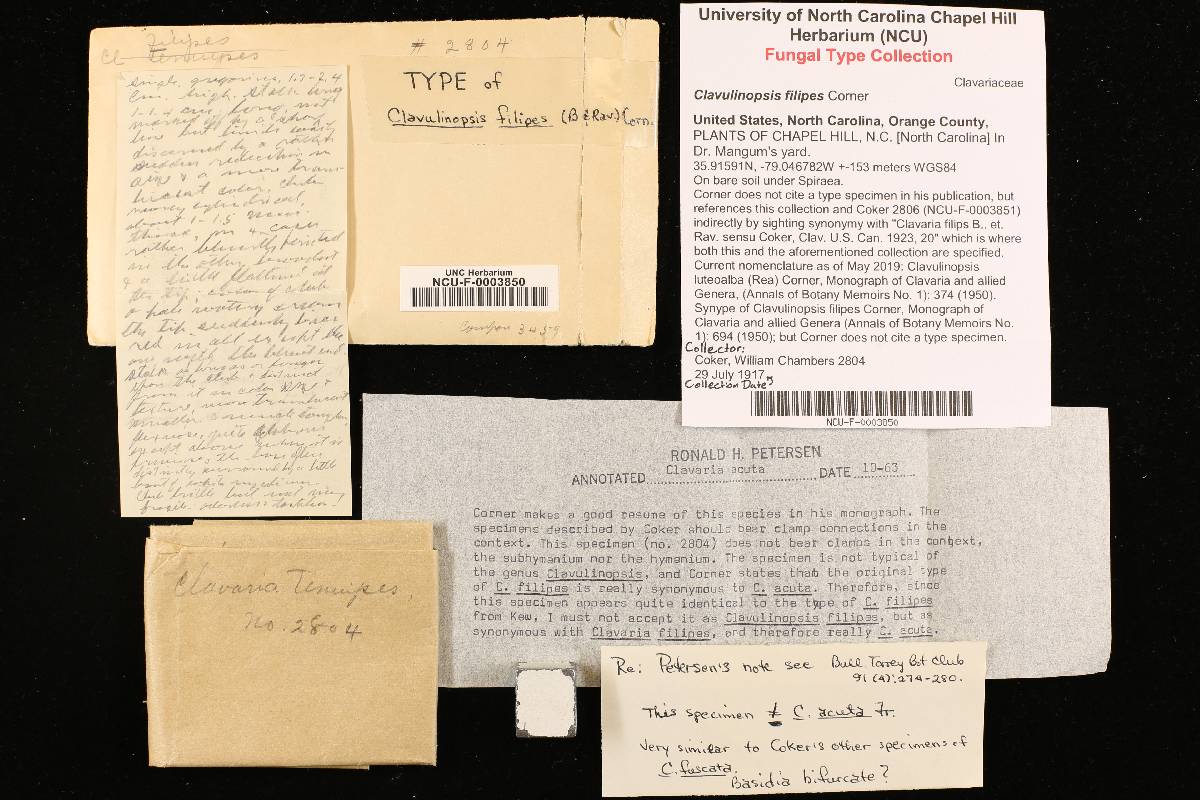 Filipes
Cl. Tenuipes
# 2804
TYPE of
Clavulinopsis filipes (B & Rav.) Corn.
UNC Herbarium
NCU-F-0003850
Compare 3459
Single, gregarious, 1.7-2.4
cm. high. Stalk long
1-1.4 cm. long, not
marked by a sharp
line but limits easily
discerned by a rather
sudden reduction in
size & a more trans-
lucent color, club
nearly cylindrical,
about 1-1.5 mm.
thick, in 4 cases
rather bluntly pointed
in the other
& a little flattened at
the tip; color of club
a pale watery cream
the tip suddenly
red in all except the
one with the blunt end.
Stalk as long as or longer
than the club & distinct
from it in color, size &
texture, more translucent
smaller
flexuose, quite glabrous
except
the base often
distinctly surrounded by a little
white mycelium.
Club brittle but not very
fragile. odorless, tasteless.
University of North Carolina Chapel Hill
Herbarium (NCU)
Fungal Type Collection
Clavariaceae
Clavulinopsis filipes Corner
United States, North Carolina, Orange County,
PLANTS OF CHAPEL HILL, N.C. [North Carolina] In
Dr. Mangum's yard.
35.91591N, -79.046782W +-153 meters WGS84
On bare soil under Spiraea.
Corner does not cite a type specimen in his publication, but
references this collection and Coker 2806 (NCU-F-0003851)
indirectly by sighting synonymy with "Clavaria filips B.. et.
Rav. sensu Coker, Clav. U.S. Can. 1923, 20" which is where
both this and the aforementioned collection are specified.
Current nomenclature as of May 2019: Clavulinopsis
luteoalba (Rea) Corner, Monograph of Clavaria and allied
Genera, (Annals of Botany Memoirs No. 1): 374 (1950).
Synype of Clavulinopsis filipes Corner, Monograph of
Clavaria and allied Genera (Annals of Botany Memoirs No.
1): 694 (1950); but Corner does not cite a type specimen.
Collector:
Coker, William Chambers 2804
29 July 1917
Collection Date
NCU-F-0003850
RONALD H. PETERSEN
ANNOTATED Clavaria acuta DATE 10-63
Corner makes a good resume of this species in his monograph. The
specimens described by Coker should bear clamp connections in the
context. This specimen (no. 2804) does not bear clamps in the context,
the subhymenium nor the hymenium. The specimen is not typical of
the genus Clavulinopsis, and Corner states that the original type
of C. filipes is really synonymous to C. acuta. Therefore, since
this specimen appears quite identical to the type of C. filipes
from Kew, I must not accept it as Clavulinopsis filipes, but as
synonymous with Clavaria filipes, and therefore really C. acuta.
Clavaria Tenuipes,
No. 2804
Re: Petersen's note see Bull Torrey Bot Club
91 (4): 274-280.
This specimen ≠ C. acuta Fr.
Very similar to Coker's other specimens of
C. fuscata.
Basidia bifurcate?